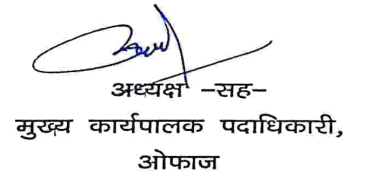 अध्यक्ष –सह–
मुख्य कार्यपालक पदाधिकारी,
ओफाज